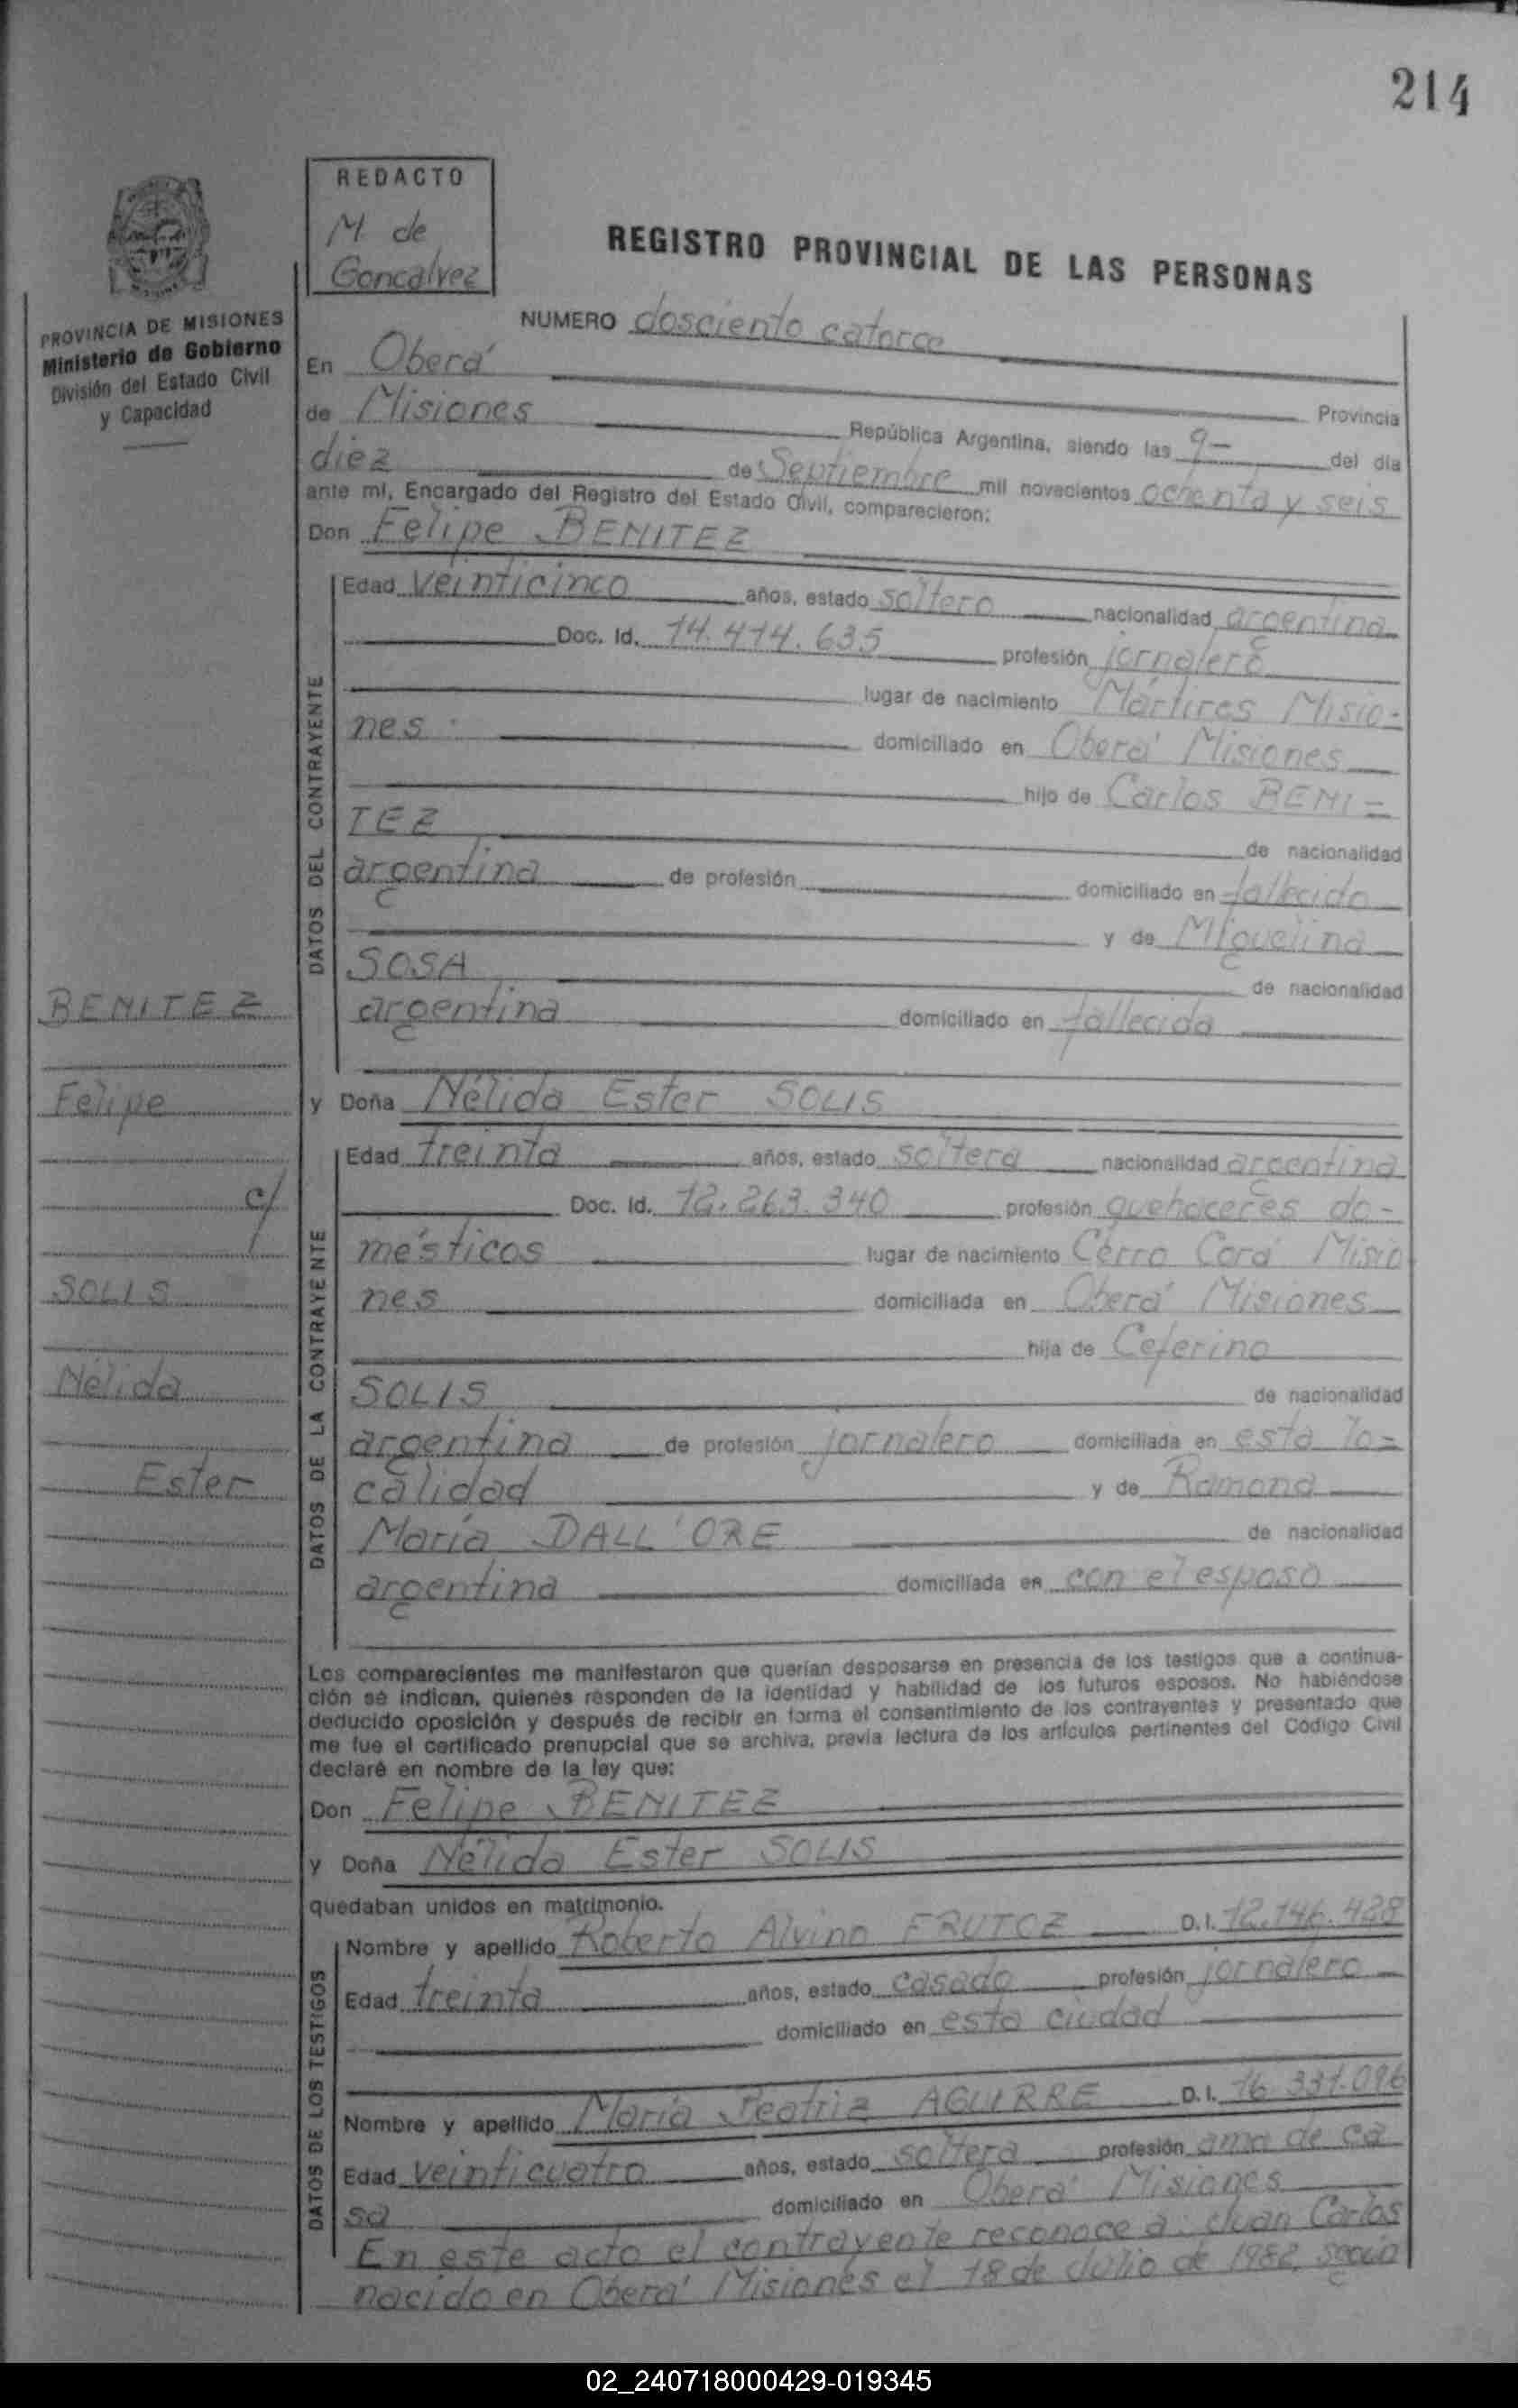 214
REDACTO
M. de
Goncalvez
REGISTRO PROVINCIAL DE LAS PERSONAS
PROVINCIA DE MISIONES
Ministerio de Gobierno
División del Estado Civil
y Capacidad
NUMERO dosciento catorce
En Oberá
Provincia
de Misiones República Argentina, siendo las 9- del día
diez de Septiembre mil novecientos ochenta y seis
ante mí, Encargado del Registro del Estado Civil, comparecieron:
Don Felipe BENITEZ
DATOS DEL CONTRAYENTE
Edad veinticinco años, estado soltero nacionalidad argentina
Doc. Id. 14.414.635 profesión jornalero
lugar de nacimiento Mártires Misio-
nes. domiciliado en Oberá Misiones
hijo de Carlos BENI=
TEZ de nacionalidad
argentina de profesión domiciliado en fallecido
y de Miguelina
SOSA de nacionalidad
argentina domiciliado en fallecida
BENITEZ
Felipe
c/
SOLIS
Nélida
Ester
y Doña Nélida Ester SOLIS
DATOS DE LA CONTRAYENTE
Edad treinta años, estado soltera nacionalidad argentina
Doc. Id. 12.263.340 profesión quehaceres do-
mésticos lugar de nacimiento Cerro Corá Misio
nes domiciliada en Oberá Misiones
hija de Ceferino
SOLIS de nacionalidad
argentina de profesión jornalero domiciliada en esta lo=
calidad y de Ramona
María DALL'ORE de nacionalidad
argentina domiciliada en con el esposo
Los comparecientes me manifestaron que querían desposarse en presencia de los testigos que a continua-
ción se indican, quienes responden de la identidad y habilidad de los futuros esposos. No habiéndose
deducido oposición y después de recibir en forma el consentimiento de los contrayentes y presentado que
me fue el certificado prenupcial que se archiva, previa lectura de los artículos pertinentes del Código Civil
declaré en nombre de la ley que:
Don Felipe BENITEZ
y Doña Nélida Ester SOLIS
quedaban unidos en matrimonio.
DATOS DE LOS TESTIGOS
Nombre y apellido Roberto Alvino FRUTOZ D.I. 12.146.428
Edad treinta años, estado casado profesión jornalero
domiciliado en esta ciudad
Nombre y apellido María Beatriz AGUIRRE D.I. 16.331.096
Edad veinticuatro años, estado soltera profesión ama de ca
sa domiciliado en Oberá Misiones
En este acto el contrayente reconoce a: Juan Carlos
nacido en Oberá Misiones el 18 de Julio de 1982, según
02_240718000429-019345